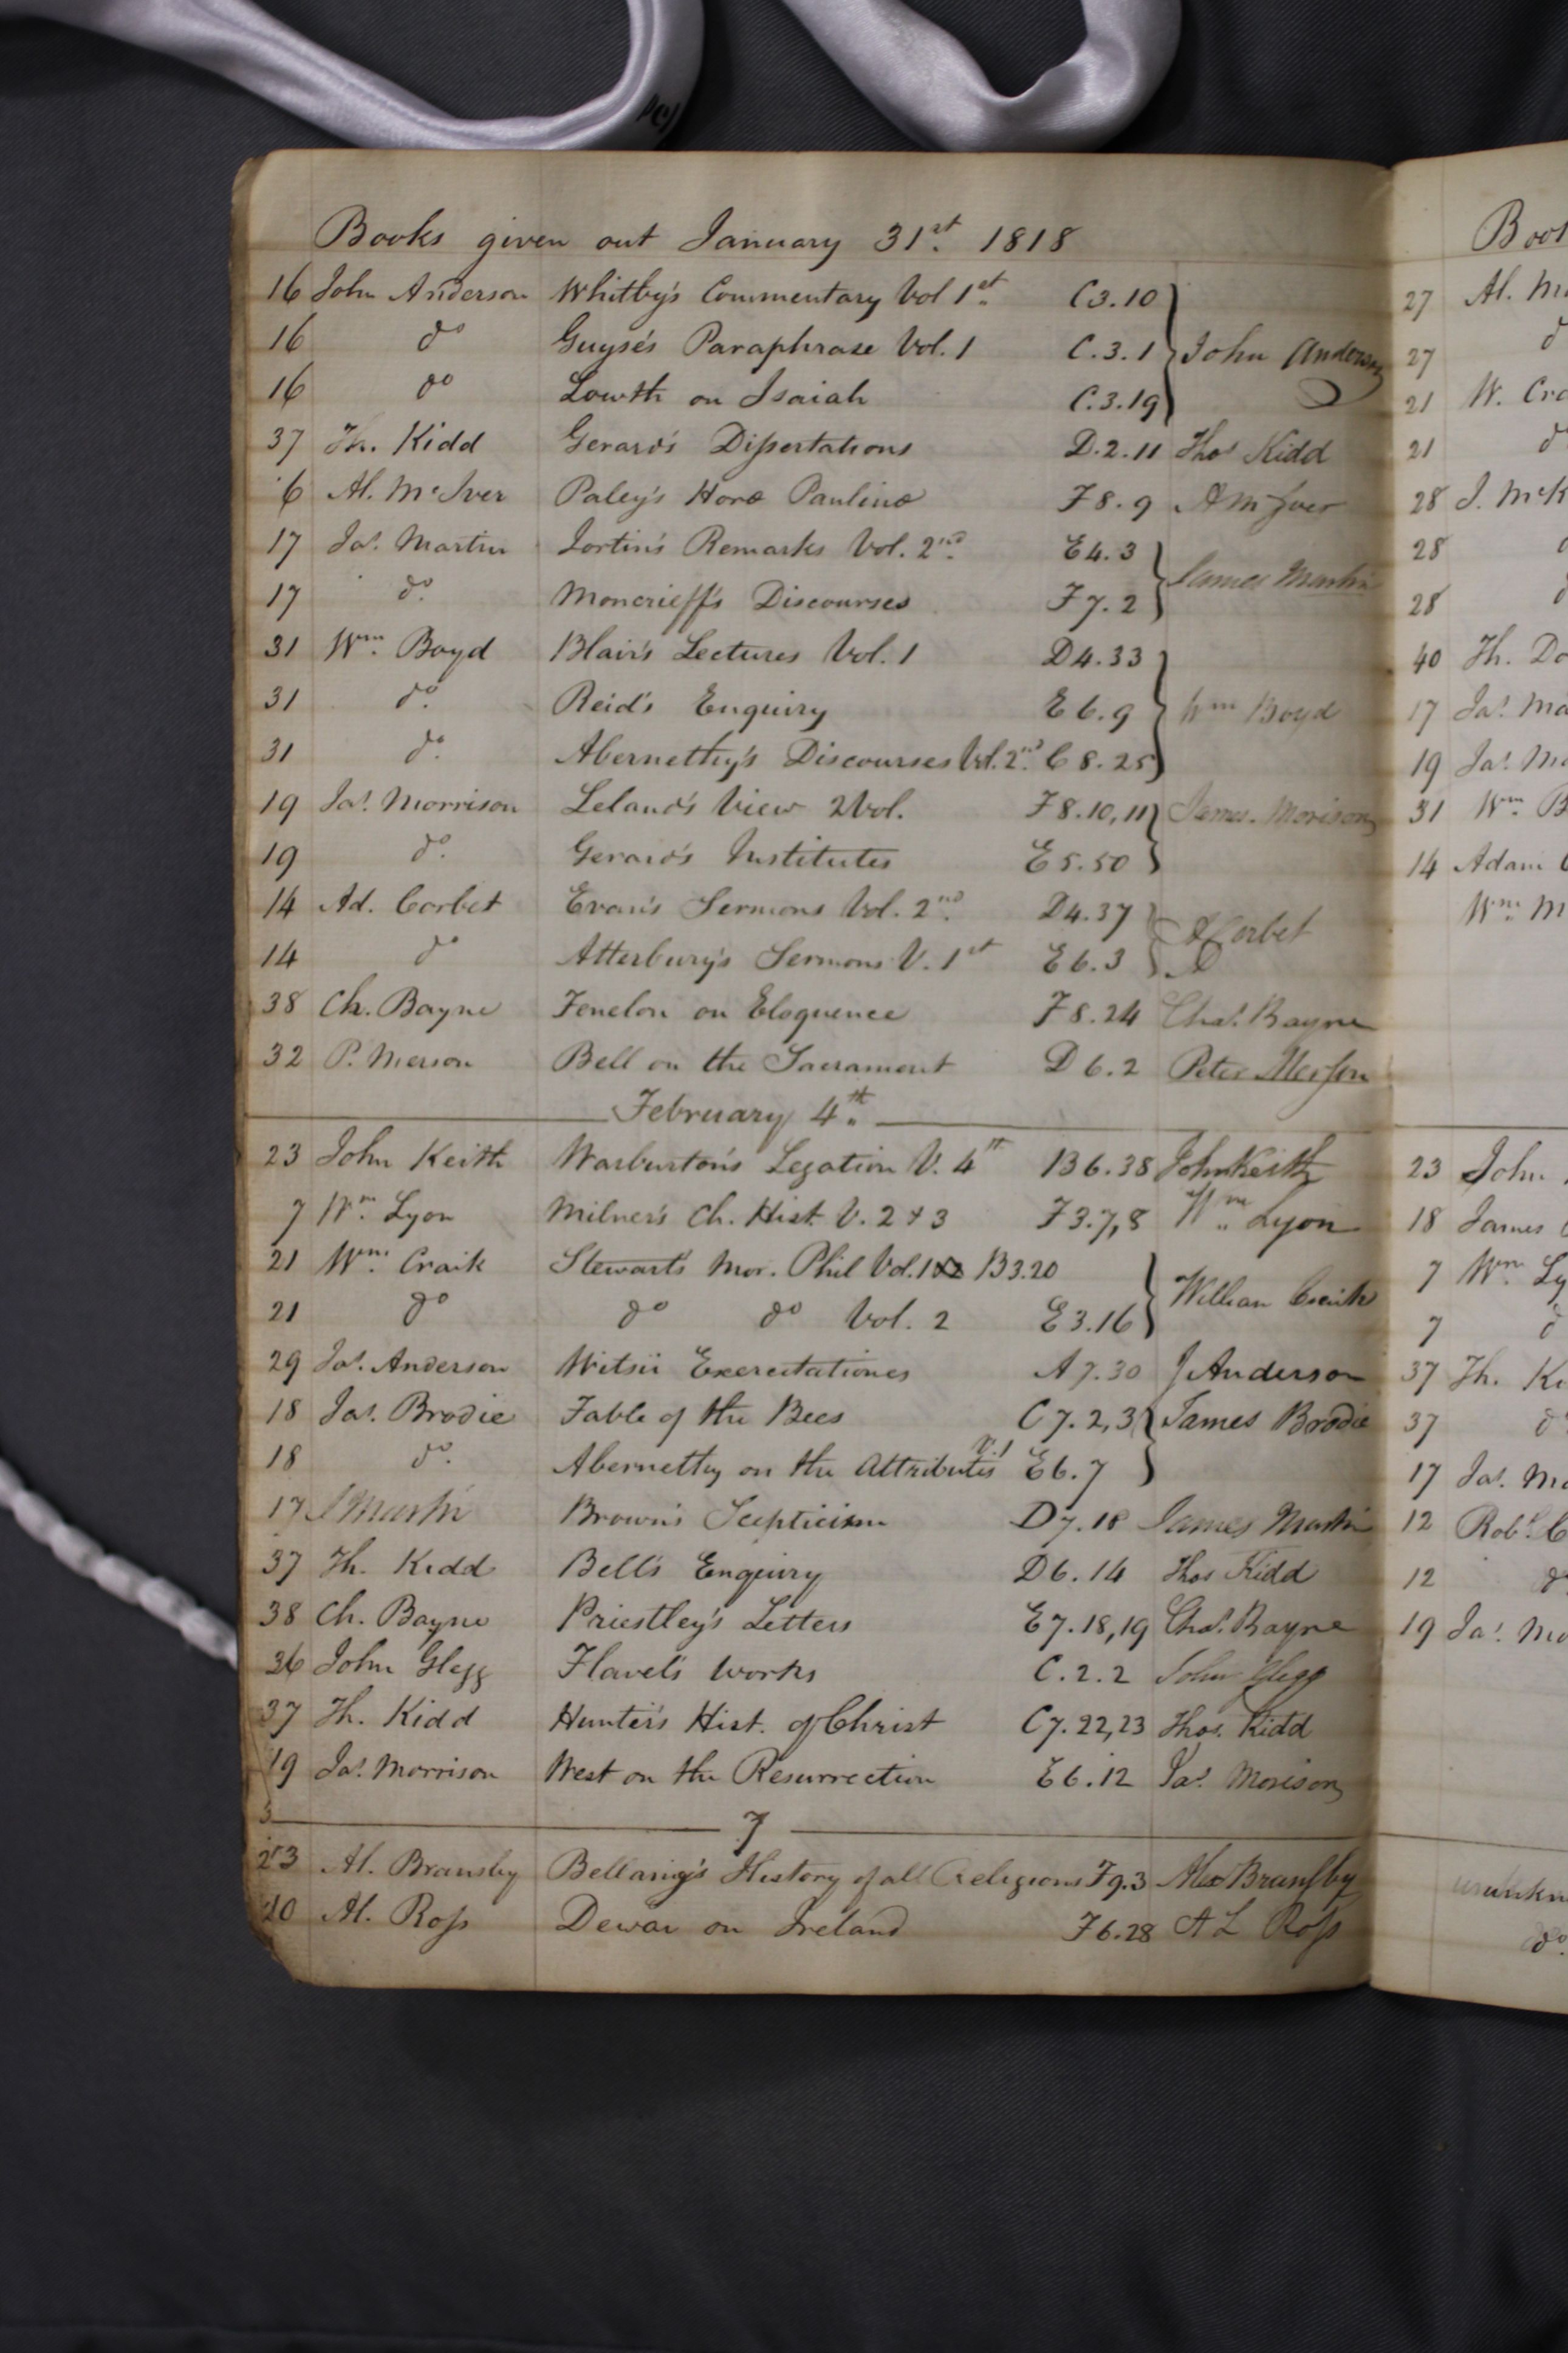 Books given out January 31st. 1818
16 John Anderson Whitby's Commentary Vol 1st. C3.10
16 do Guyse's Paraphrase Vol. 1 C.3.1 John Anderson
16 do Lowth on Isaiah C.3.19
37 Th. Kidd Gerard's Dissertations D.2.11 Thos Kidd
6 Al. McIver Paley's Horæ Paulinæ F8.9 A McIver
17 Jas. Martin Jortin's Remarks Vol. 2nd. E4.3 James Martin
17 do. Moncrieff's Discourses F7.2
31 Wm. Boyd Blair's Lectures Vol. 1 D4.33
31 do. Reid's Enquiry E6.9 Wm Boyd
31 do. Abernethy's Discourses Vol. 2nd. C8.25
19 Jas. Morrison Leland's View 2 Vol. F8.10,11 James Morison
19 do. Gerard's Institutes E5.50
14 Ad. Corbet Evan's Sermons Vol. 2nd. D4.37 A Corbet
14 do Atterbury's Sermons V. 1st E6.3
38 Ch. Bayne Fenelon on Eloquence F8.24 Chas. Bayne
32 P. Merson Bell on the Sacrament D6.2 Peter Merson
February 4th.
23 John Keith Warburton's Legation V. 4th B6.38 John Keith
7 Wm Lyon Milner's Ch. Hist. V. 2 & 3 F3.7,8 Wm. Lyon
21 Wm. Craik Stewart's Mor. Phil Vol. 1 B3.20 William Craik
21 do do do Vol. 2 E3.16
29 Jas. Anderson Witsii Exercitationes A7.30 J Anderson
18 Jas. Brodie Fable of the Bees C7.2,3 James Brodie
18 do. Abernethy on the Attributes V.1 E6.7
17 J Martin Brown's Scepticism D7.18 James Martin
37 Th. Kidd Bell's Enquiry D6.14 Thos Kidd
38 Ch. Bayne Priestley's Letters E7.18,19 Chas. Bayne
36 John Glegg Flavel's Works C.2.2 John Glegg
37 Th. Kidd Hunter's Hist. of Christ C7.22,23 Thos. Kidd
19 Jas. Morrison West on the Resurrection E6.12 Jas. Morison
7
Al. Bransby Bellamy's History of all Religions F9.3 Alex Bransby
Al. Ross Dewar on Ireland F6.28 A L Ross
27
27
21
21
28
28
28
40
17
19
31
14
23 John
18 James
7
7
37
37
17
12
12
19